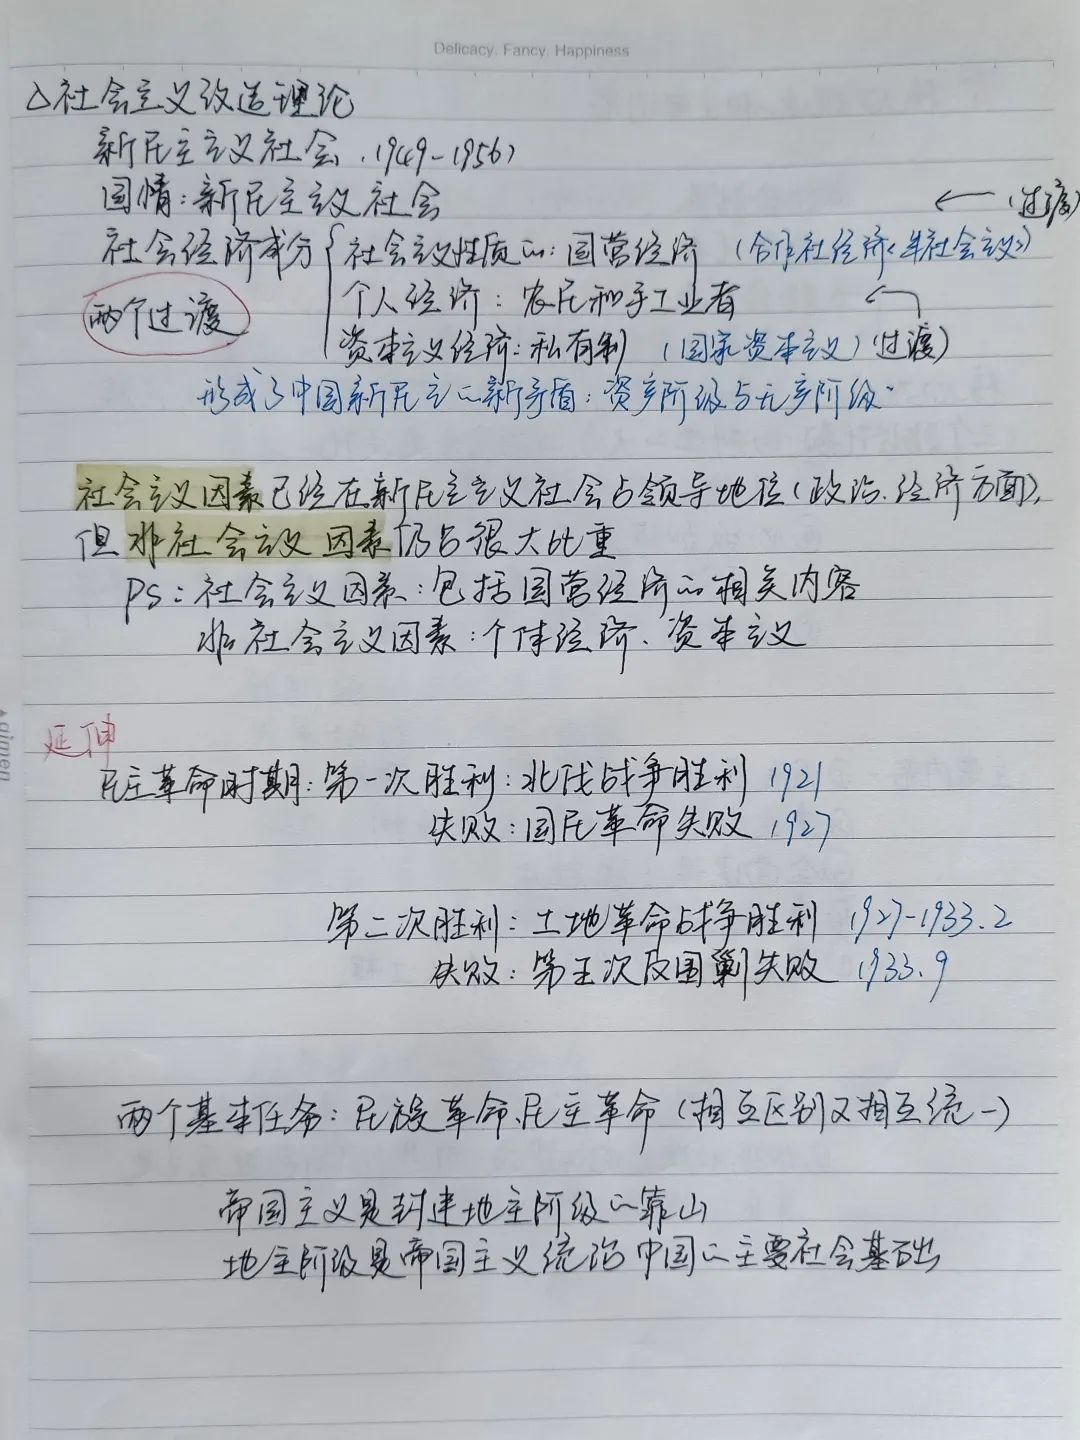 Delicacy. Fancy. Happiness
△社会主义改造理论
新民主主义社会（1949-1956）
国情：新民主主义社会 ←（过渡）
社会经济成分 社会主义性质的：国营经济 （合作社经济<半社会主义>）
两个过渡 个人经济：农民和手工业者
资本主义经济：私有制 （国家资本主义）（过渡）
形成了中国新民主的新矛盾：资产阶级与无产阶级
社会主义因素已经在新民主主义社会占领导地位（政治、经济方面），
但非社会主义因素仍占很大比重
PS：社会主义因素：包括国营经济的相关内容
非社会主义因素：个体经济、资本主义
qimen
延伸
民主革命时期：第一次胜利：北伐战争胜利 1921
失败：国民革命失败 1927
第二次胜利：土地革命战争胜利 1927-1933.2
失败：第五次反围剿失败 1933.9
两个基本任务：民族革命、民主革命（相互区别又相互统一）
帝国主义是封建地主阶级的靠山
地主阶级是帝国主义统治中国的主要社会基础